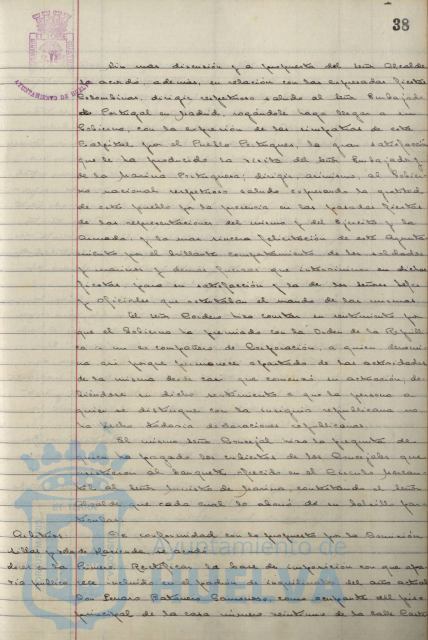 38
AYUNTAMIENTO DE HUELVA
Sin mas discusión y a propuesta del Señor Alcalde
se acordó, además, en relación con las expresadas Fiestas
Colombinas, dirigir respetuoso saludo al Señor Embajador
de Portugal en Madrid, rogándole haga llegar a su
Gobierno, con la expresión de las simpatías de esta
Capital por el Pueblo Portugues, la gran satisfacción
que le ha producido la visita del Señor Embajador y
de la Marina Portuguesa; dirigir, asimismo, al Gobier-
no nacional respetuoso saludo expresando la gratitud
de este pueblo por la presencia en las pasadas Fiestas
de las representaciones del mismo y del Ejercito y la
Armada, y la mas sincera felicitación de este Ayunta-
miento por el brillante comportamiento de los soldados
y marinos y demas fuerzas que intervinieron en dichas
Fiestas, para su satisfacción y la de los señores Jefes
y Oficiales que ostentaban el mando de las mismas.
El Señor Cordero hizo constar su sentimiento por
que el Gobierno ha premiado con la Orden de la Repúbli-
ca a un ex-compañero de Corporación, a quien denomi-
na así porque permanece apartado de las actividades
de la misma desde casi que comenzó su actuación, de-
biéndose su dicho sentimiento a que la persona a
quien se distingue con la insignia republicana no
ha hecho todavía declaraciones republicanas.
El mismo señor Concejal hizo la pregunta de
quien ha pagado los cubiertos de los Concejales que
asistieron al banquete ofrecido en el Circulo Mercan-
til al Señor Ministro de Marina, contestando el Señor
Alcalde que cada cual lo abonó de su bolsillo par-
ticular.
Arbitrios
De conformidad con lo propuesto por la Comisión
de Hacienda, se acordó:
Primero. Rectificar la base de imposición con que apa-
rece incluido en el padrón de inquilinatos del año actual
Don Genaro Batanero, como ocupante del piso
principal de la casa número veintiuno de la calle
Ayuntamiento de
HUELVA